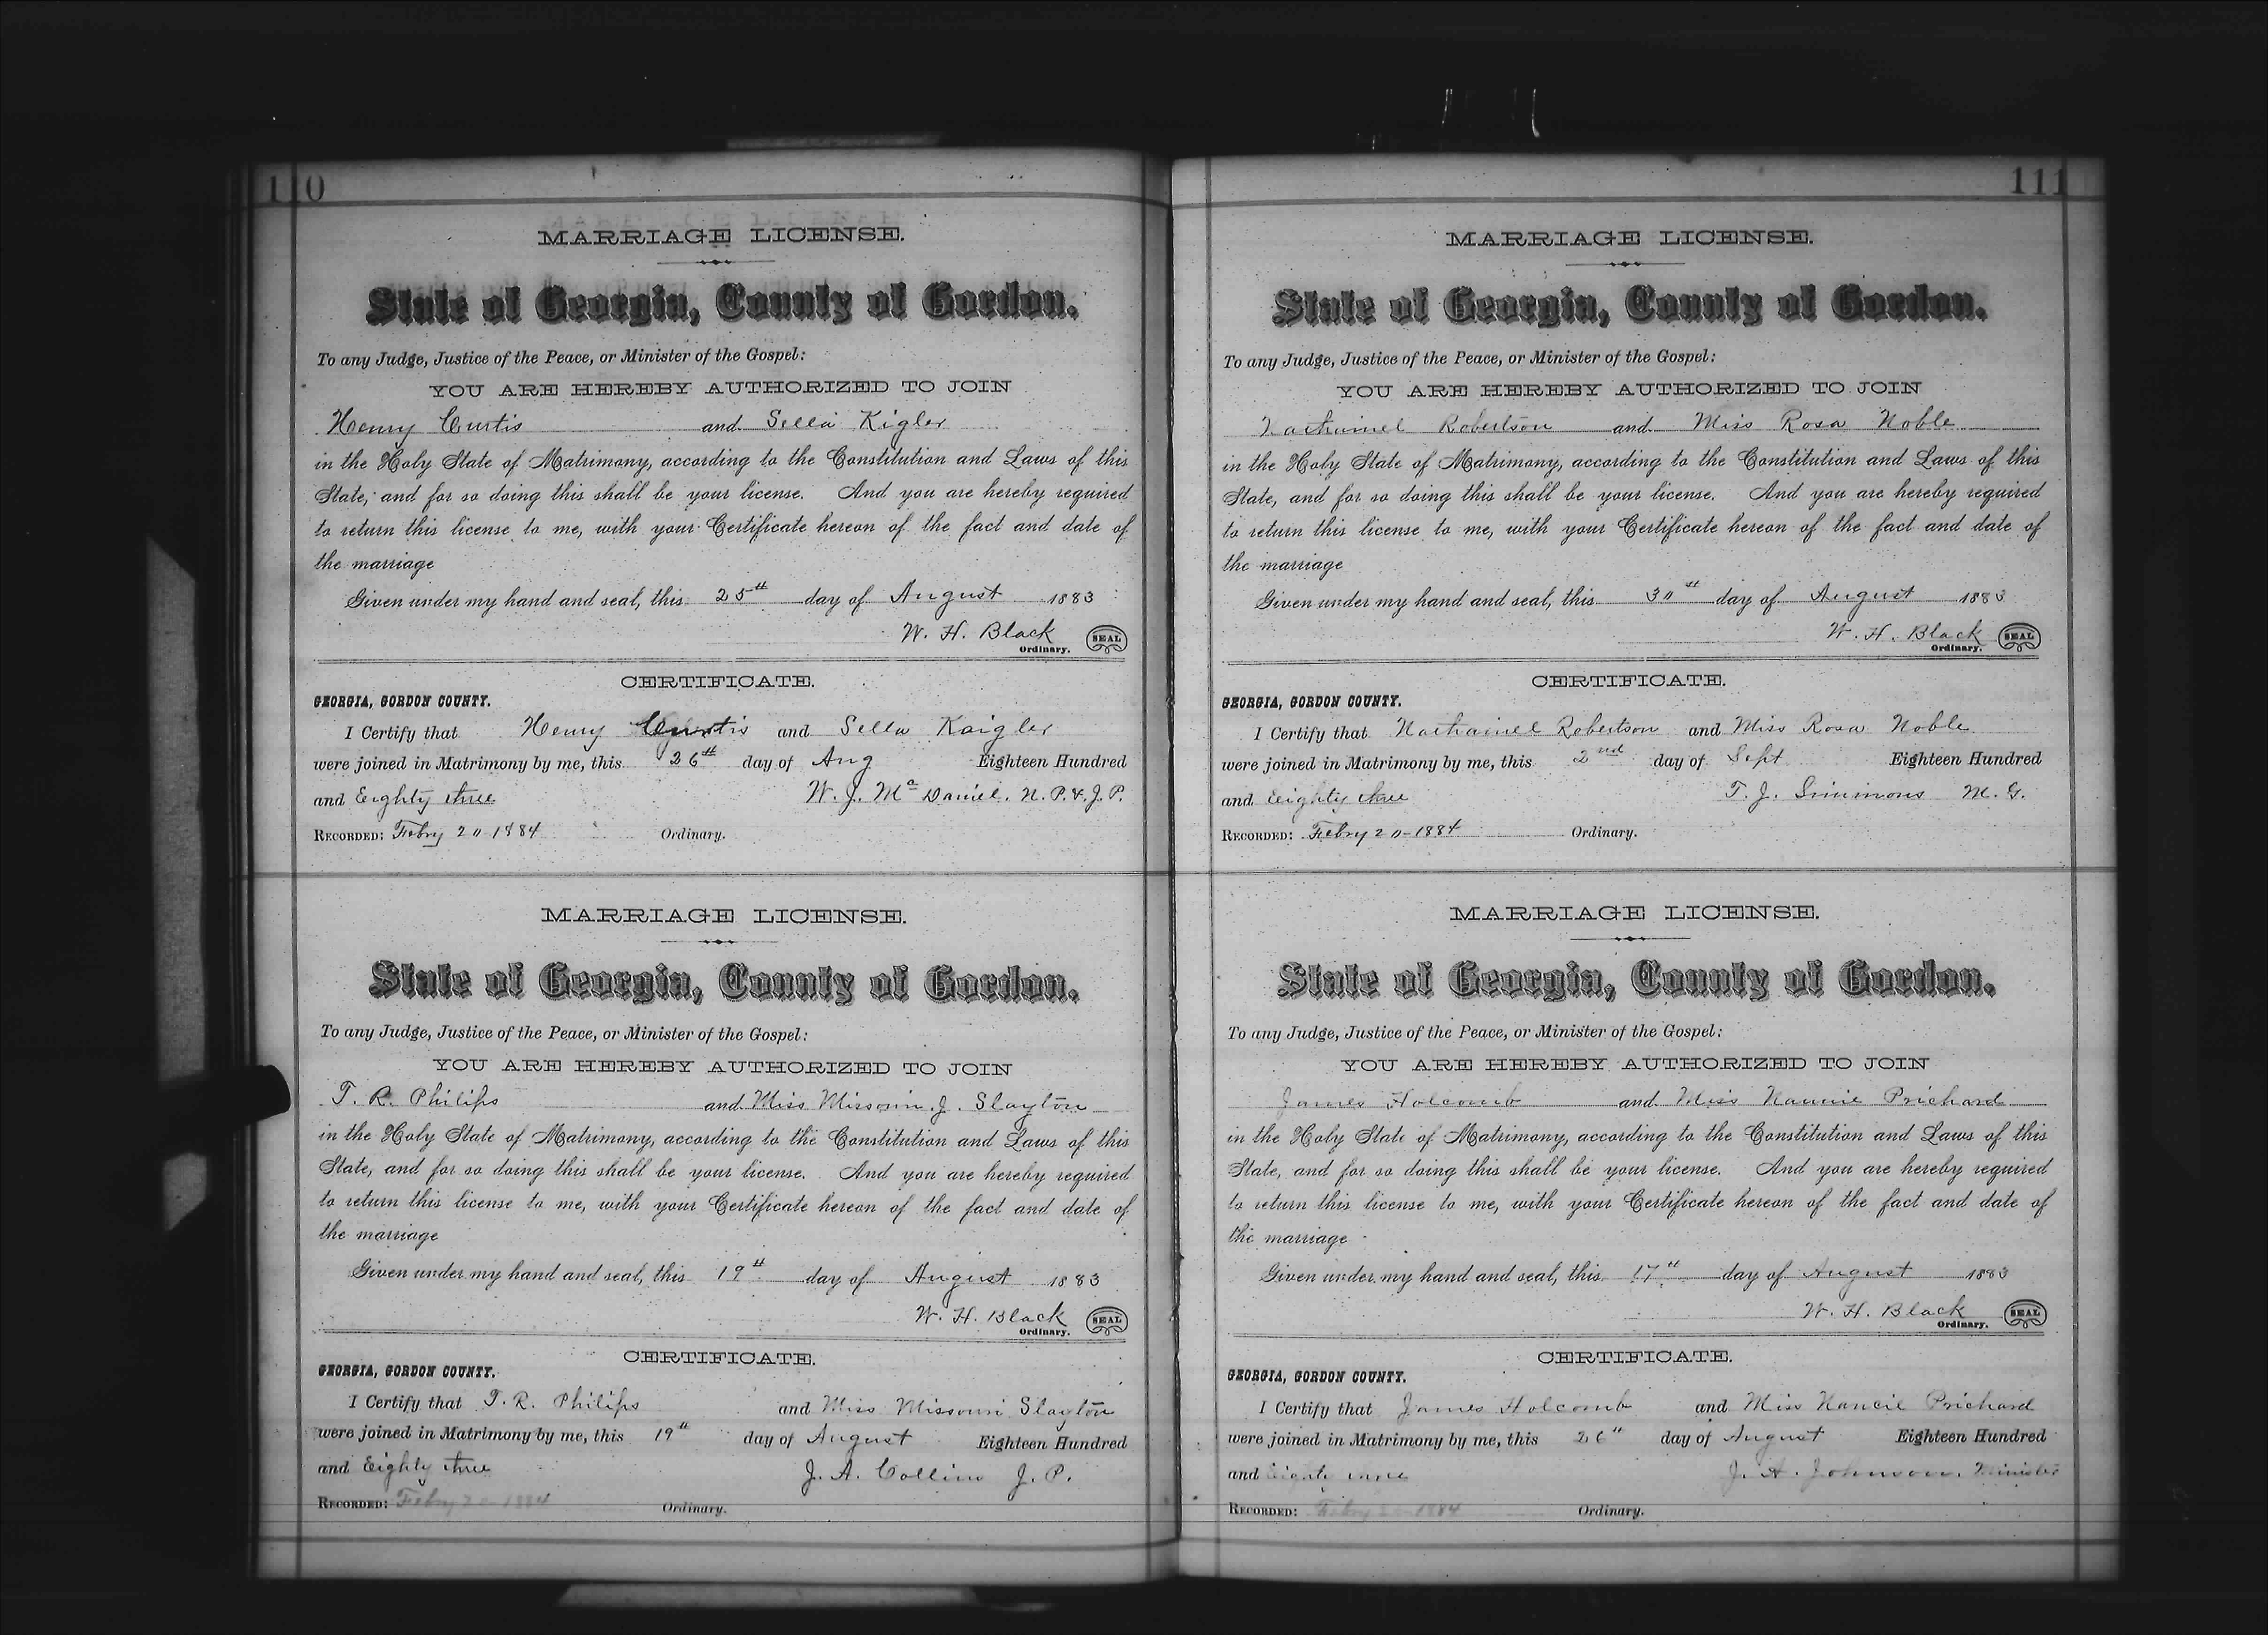 110
MARRIAGE LICENSE.
State of Georgia, County of Gordon.
To any Judge, Justice of the Peace, or Minister of the Gospel:
YOU ARE HEREBY AUTHORIZED TO JOIN
Henry Curtis and Sella Kigler
in the Holy State of Matrimony, according to the Constitution and Laws of this
State, and for so doing this shall be your license. And you are hereby required
to return this license to me, with your Certificate hereon of the fact and date of
the marriage
Given under my hand and seal, this 25th day of August 1883
W. H. Black SEAL
Ordinary.
CERTIFICATE.
GEORGIA, GORDON COUNTY.
I Certify that Henry Curtis and Sella Kaigler
were joined in Matrimony by me, this 26th day of Aug Eighteen Hundred
and Eighty three W. J. McDaniel, N. P. & J. P.
RECORDED: Febry 20-1884 Ordinary.
MARRIAGE LICENSE.
State of Georgia, County of Gordon.
To any Judge, Justice of the Peace, or Minister of the Gospel:
YOU ARE HEREBY AUTHORIZED TO JOIN
T. R. Philips and Miss Missouri J. Slayton
in the Holy State of Matrimony, according to the Constitution and Laws of this
State, and for so doing this shall be your license. And you are hereby required
to return this license to me, with your Certificate hereon of the fact and date of
the marriage
Given under my hand and seal, this 19th day of August 1883
W. H. Black SEAL
Ordinary.
CERTIFICATE.
GEORGIA, GORDON COUNTY.
I Certify that T. R. Philips and Miss Missouri Slayton
were joined in Matrimony by me, this 19th day of August Eighteen Hundred
and Eighty three J. A. Collins J. P.
RECORDED: Febry 20-1884 Ordinary.
111
MARRIAGE LICENSE.
State of Georgia, County of Gordon.
To any Judge, Justice of the Peace, or Minister of the Gospel:
YOU ARE HEREBY AUTHORIZED TO JOIN
Nathainel Robertson and Miss Rosa Noble
in the Holy State of Matrimony, according to the Constitution and Laws of this
State, and for so doing this shall be your license. And you are hereby required
to return this license to me, with your Certificate hereon of the fact and date of
the marriage
Given under my hand and seal, this 30th day of August 1883
W. H. Black SEAL
Ordinary.
CERTIFICATE.
GEORGIA, GORDON COUNTY.
I Certify that Nathainel Robertson and Miss Rosa Noble
were joined in Matrimony by me, this 2nd day of Sept Eighteen Hundred
and Eighty three T. J. Simmons M. G.
RECORDED: Febry 20-1884 Ordinary.
MARRIAGE LICENSE.
State of Georgia, County of Gordon.
To any Judge, Justice of the Peace, or Minister of the Gospel:
YOU ARE HEREBY AUTHORIZED TO JOIN
James Holcomb and Miss Nannie Prichard
in the Holy State of Matrimony, according to the Constitution and Laws of this
State, and for so doing this shall be your license. And you are hereby required
to return this license to me, with your Certificate hereon of the fact and date of
the marriage
Given under my hand and seal, this 17th day of August 1883
W. H. Black SEAL
Ordinary.
CERTIFICATE.
GEORGIA, GORDON COUNTY.
I Certify that James Holcomb and Miss Nancie Prichard
were joined in Matrimony by me, this 26th day of August Eighteen Hundred
and Eighty three J. A. Johnson, Minister
RECORDED: Febry 20-1884 Ordinary.